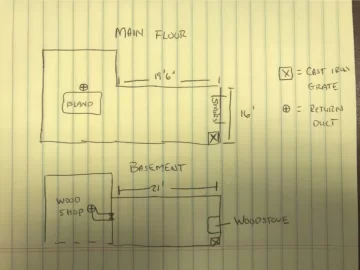 MAIN FLOOR
19'6"
ISLAND
STAIRS
16'
X = CAST IRON
GRATE
⊕ = RETURN
DUCT
BASEMENT
21'
WOOD
SHOP
WOODSTOVE